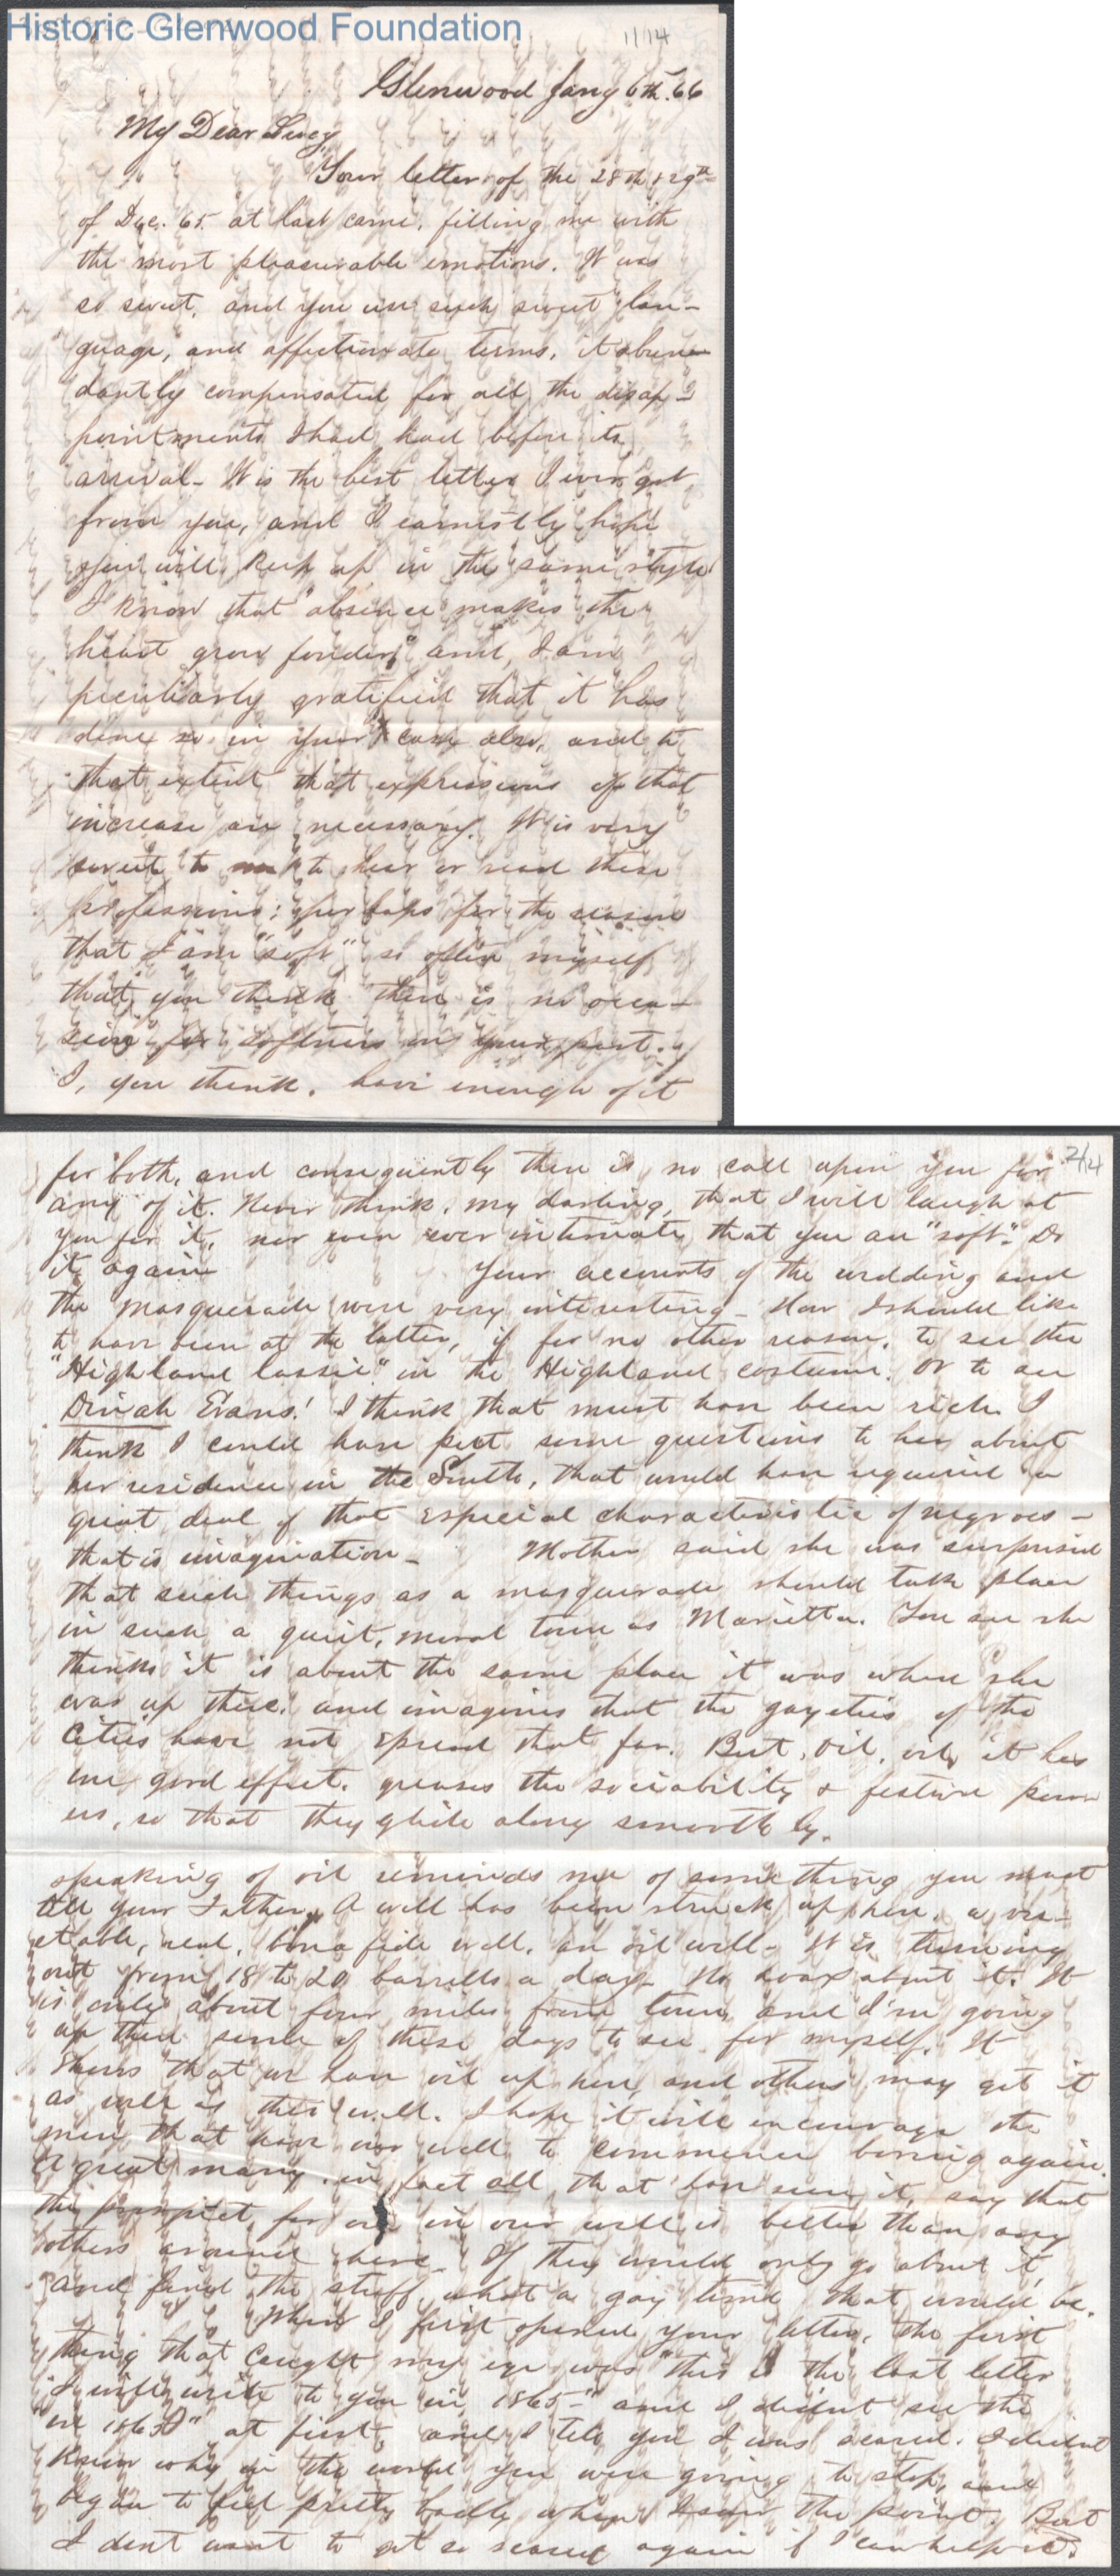 Historic Glenwood Foundation
11/14
Glenwood Jany 6th. 66
My Dear Lucy
Your letter of the 28th & 29th
of Dec. 65 at last came, filling me with
the most pleasurable emotions. It was
so sweet, and you use such sweet lan-
guage, and affectionate terms, it abun-
dantly compensated for all the disap-
pointments I had had before its
arrival - It is the best letter I ever got
from you, and I earnestly hope
you will keep up in the same style
I know that "absence makes the
heart grow fonder," and, I am
peculiarly gratified that it has
done so in your case also, and to
that extent that expressions of that
increase are necessary. It is very
sweet to to hear or read these
professions; perhaps for the reason
that I am "soft" so often myself
that you think there is no occa-
sion for softness on your part.
I, you think, have enough of it
2/14
for both, and consequently there is no call upon you for
any of it. Never think, my darling, that I will laugh at
you for it, nor even ever intimate that you are "soft". Do
it again Your accounts of the wedding and
the masquerade were very interesting - How I should like
to have been at the latter, if for no other reason, to see the
"Highland lassie" in the Highland costume. Or to see
Dinah Evans! I think that must have been rich. I
think I could have put some questions to her about
her residence in the South, that would have required a
great deal of that especial characteristic of negroes -
that is imagination - Mother said she was surprised
that such things as a masquerade should take place
in such a quiet, moral town as Marietta. You see she
thinks it is about the same place it was when she
was up there, and imagines that the gayeties of the
Cities have not spread that far. But, Oil, oil, it has
one good effect, greases the sociability & festive
so that they glide along smoothly.
speaking of oil reminds me of something you must
tell your Father. A well has been struck up here, a ver-
itable, real, bona fide well, an oil well - It is turning
out from 18 to 20 barrells a day - No hoax about it. It
is only about four miles from town, and I'm going
up there some of these days to see for myself. It
shows that we have oil up here, and others may get it
as well as this well. I hope it will encourage the
men that have our well to commence boring again.
A great many, in fact all that have seen it, say that
the prospect for oil in our well is better than any
others around here. If they would only go about it,
and find the stuff, what a gay time that would be.
When I first opened your letter, the first
thing that caught my eye was "this is the last letter
I will write to you in 1865 -" and I didnt see the
"in 1865" at first, and I tell you I was scared. I didnt
know why in the world you were going to stop, and
began to feel pretty badly when I saw the point. But
I dont want to get so scared again if I can help it.